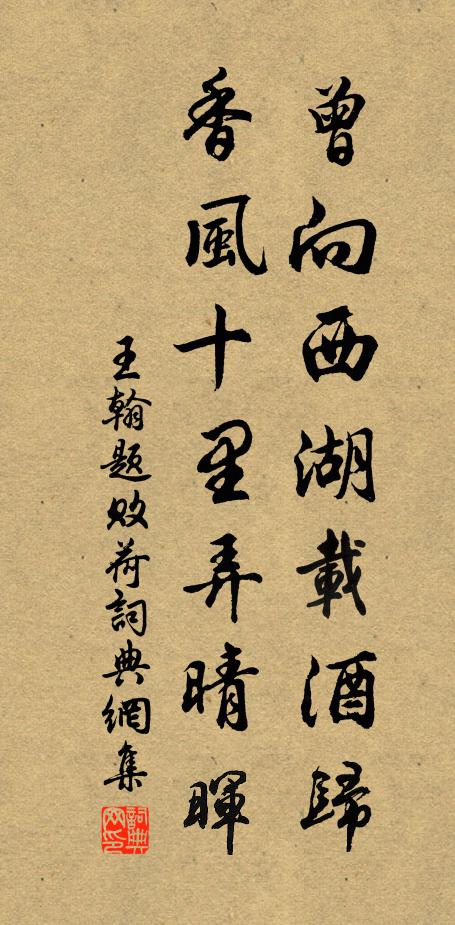 曾向西湖載酒歸
香風十里弄晴暉
王翰題敗荷詞典網集
詞典网印